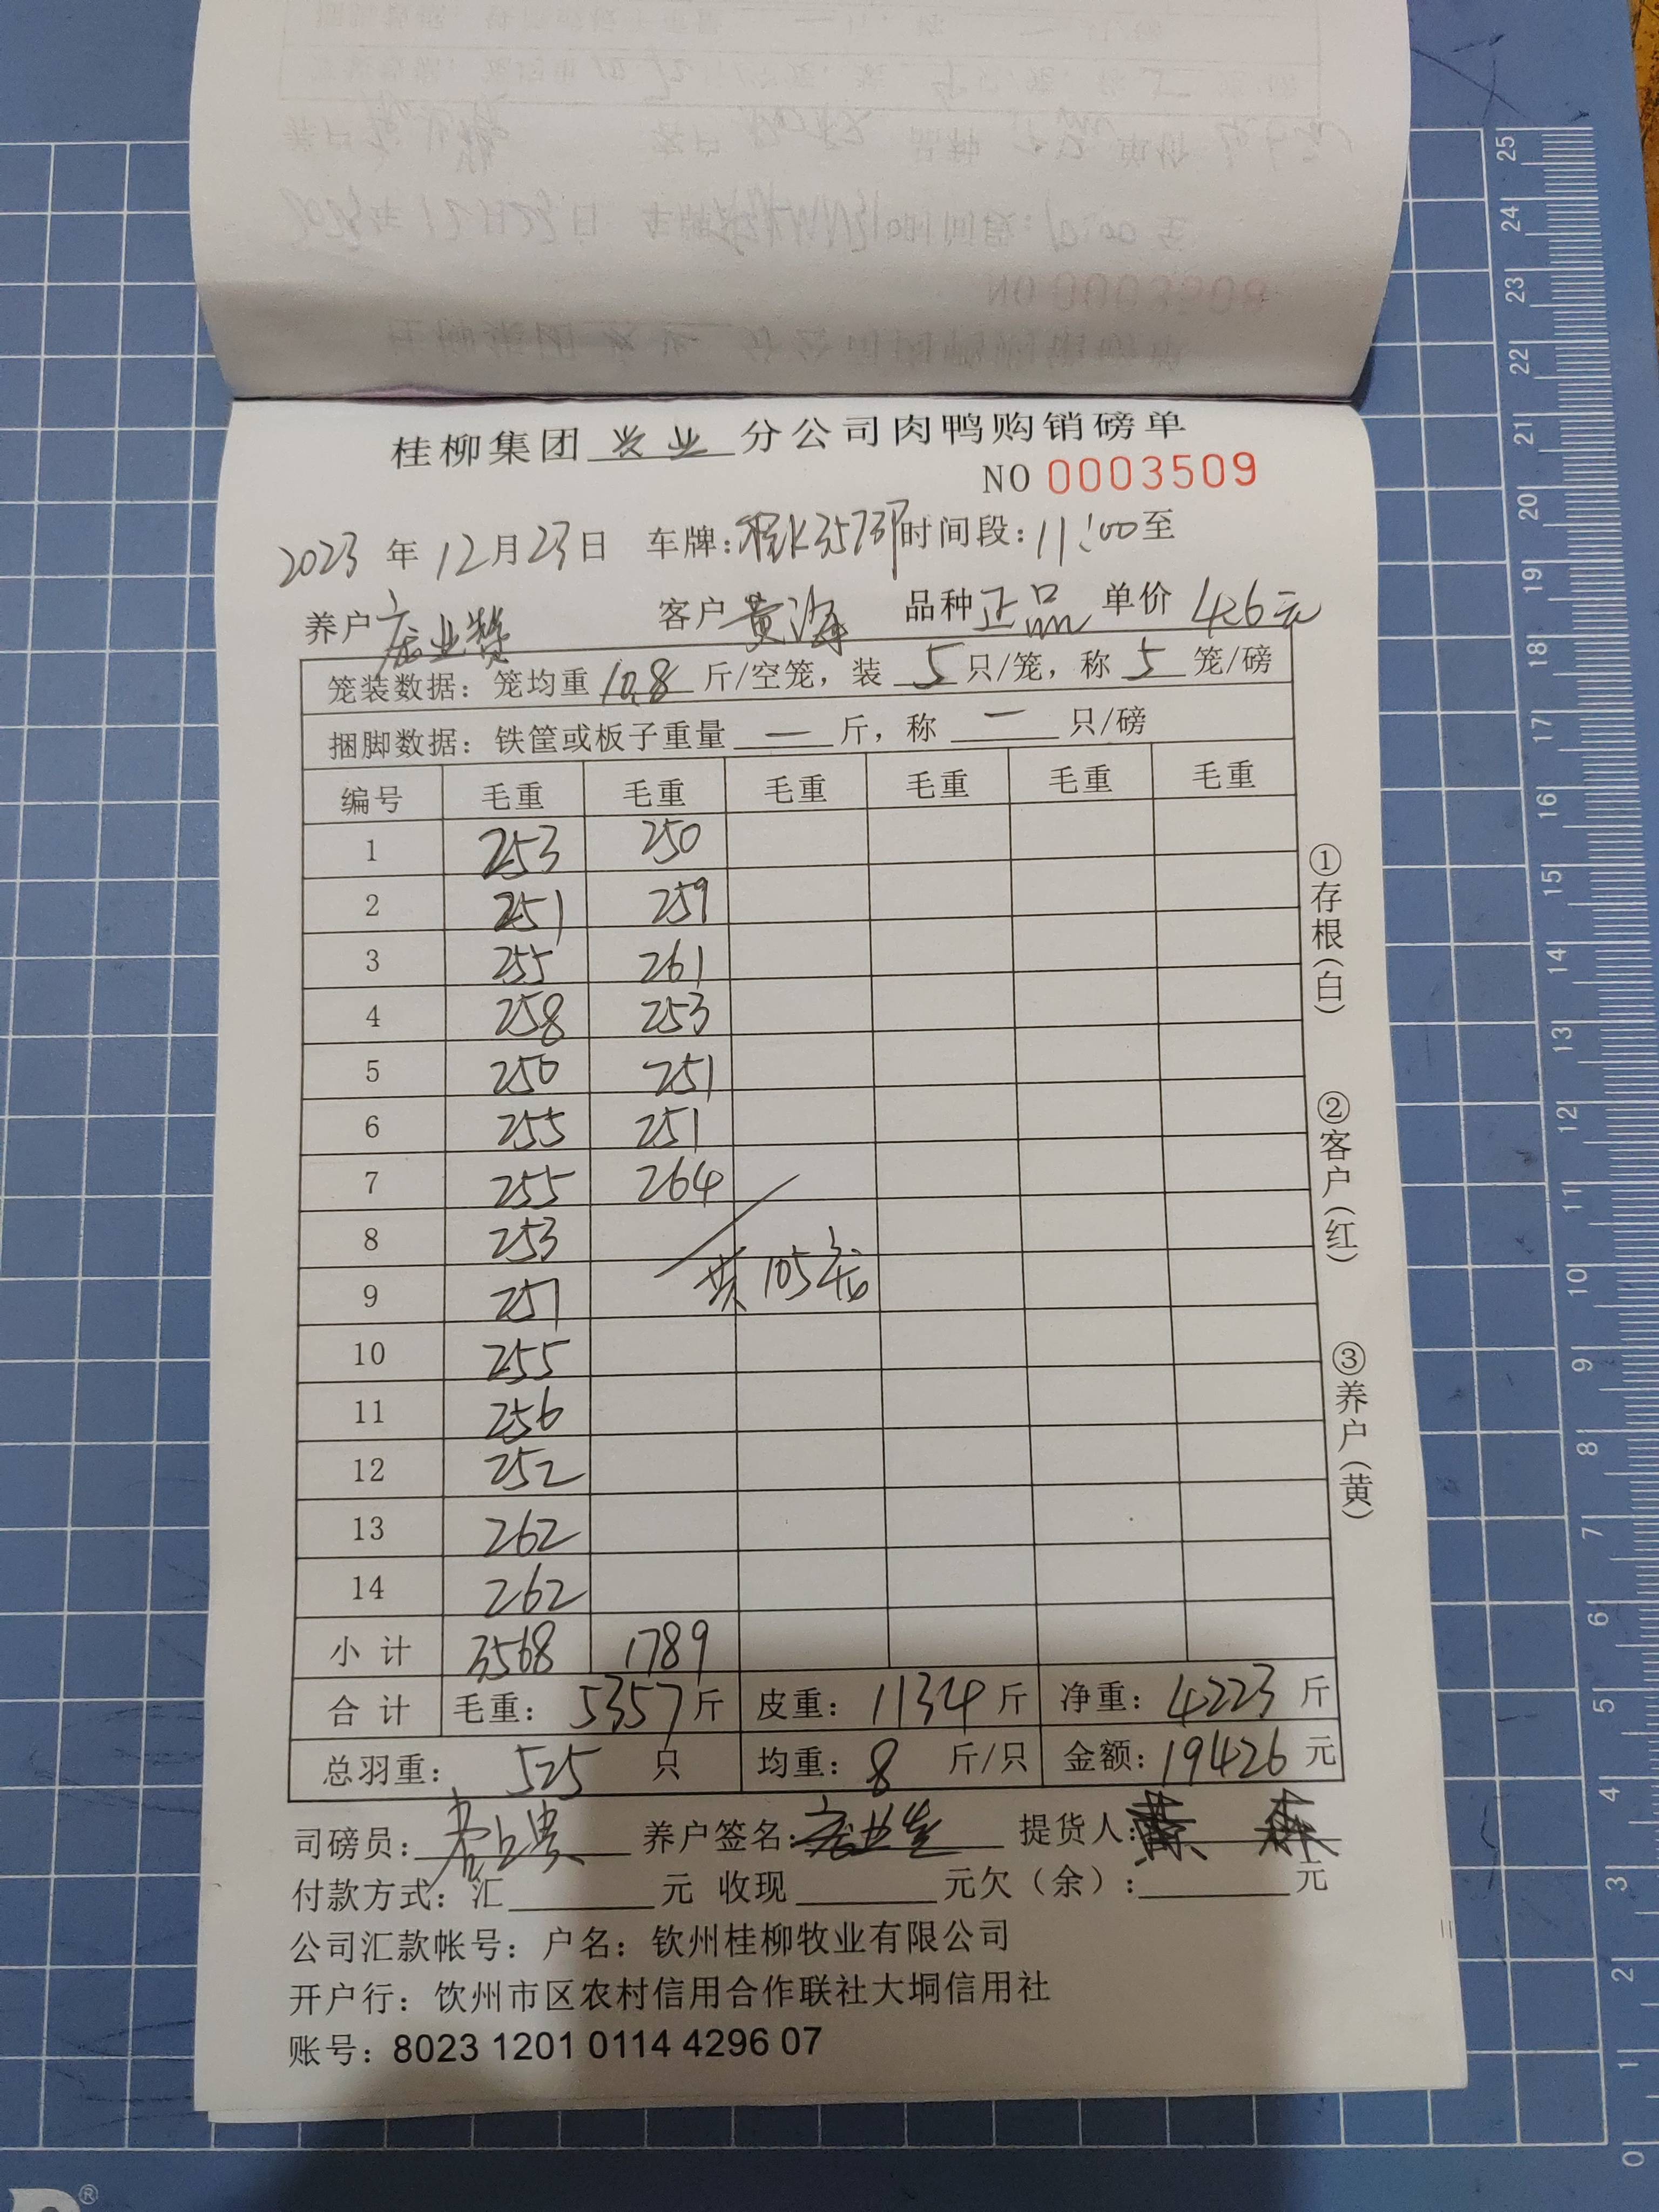 桂柳集团 兴业 分公司肉鸭购销磅单
NO 0003509
2023 年 12 月 23 日 车牌: 桂K 时间段: 11:00 至
养户 业赞 客户 黄海 品种 正品 单价 4.6元
笼装数据: 笼均重 10.8 斤/空笼, 装 5 只/笼, 称 5 笼/磅
捆脚数据: 铁筐或板子重量 — 斤, 称 — 只/磅
编号 毛重 毛重 毛重 毛重 毛重 毛重
1 253 250
2 251 259
3 255 261
4 258 253
5 250 251
6 255 251
7 255 264
8 253
9 251 共105笼
10 255
11 256
12 252
13 262
14 262
小计 3568 1789
合计 毛重: 5357 斤 皮重: 1134 斤 净重: 4223 斤
总羽重: 525 只 均重: 8 斤/只 金额: 19426 元
司磅员: 养户签名: 提货人:
付款方式: 汇 元 收现 元欠(余): 元
公司汇款帐号: 户名: 钦州桂柳牧业有限公司
开户行: 钦州市区农村信用合作联社大垌信用社
账号: 8023 1201 0114 4296 07
①存根(白)
②客户(红)
③养户(黄)
25
24
23
22
21
20
19
18
17
16
15
14
13
12
11
10
9
8
7
6
5
4
3
2
1
0
®